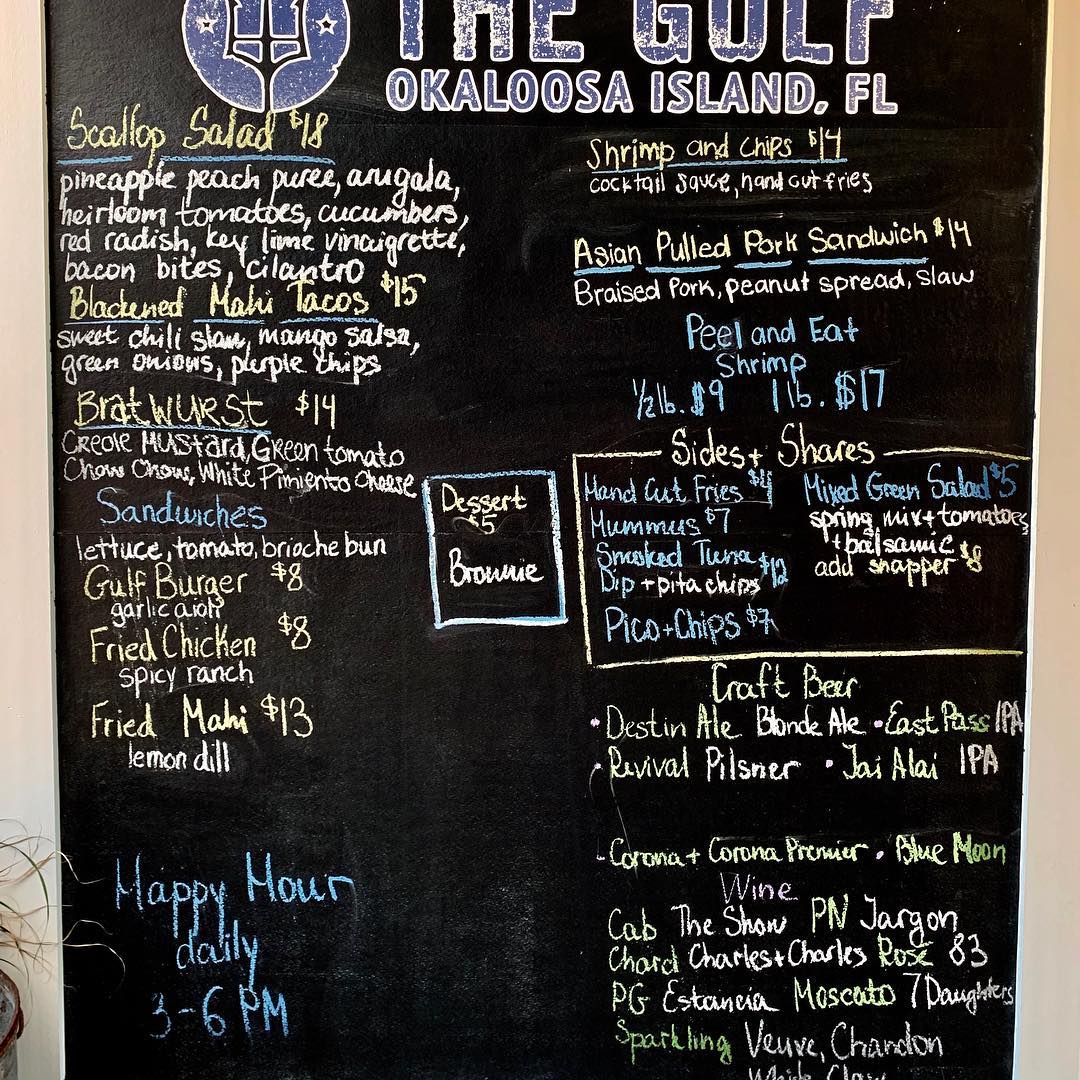 THE GULF
OKALOOSA ISLAND, FL
Scallop Salad $18
pineapple peach puree, arugala,
heirloom tomatoes, cucumbers,
red radish, key lime vinaigrette,
bacon bites, cilantro
Blackened Mahi Tacos $15
sweet chili slaw, mango salsa,
green onions, purple chips
Bratwurst $14
Creole Mustard, Green tomato
Chow Chow, White Pimiento Cheese
Sandwiches
lettuce, tomato, brioche bun
Gulf Burger $8
garlic aioli
Fried Chicken $8
spicy ranch
Fried Mahi $13
lemon dill
Happy Hour
daily
3-6 PM
Dessert
$5
Brownie
Shrimp and Chips $14
cocktail sauce, hand cut fries
Asian Pulled Pork Sandwich $14
Braised Pork, peanut spread, slaw
Peel and Eat
Shrimp
1/2 lb. $9 1 lb. $17
Sides + Shares
Hand Cut Fries $4
Hummus $7
Smoked Tuna $12
Dip + pita chips
Pico + Chips $7
Mixed Green Salad $5
spring mix + tomatoes
+ balsamic
add snapper $8
Craft Beer
• Destin Ale Blonde Ale • East Pass IPA
• Revival Pilsner • Jai Alai IPA
- Corona + Corona Premier • Blue Moon
Wine
Cab The Show PN Jargon
Chard Charles + Charles Rosé 83
PG Estancia Moscato 7 Daughters
Sparkling Veuve, Chandon
White Claw